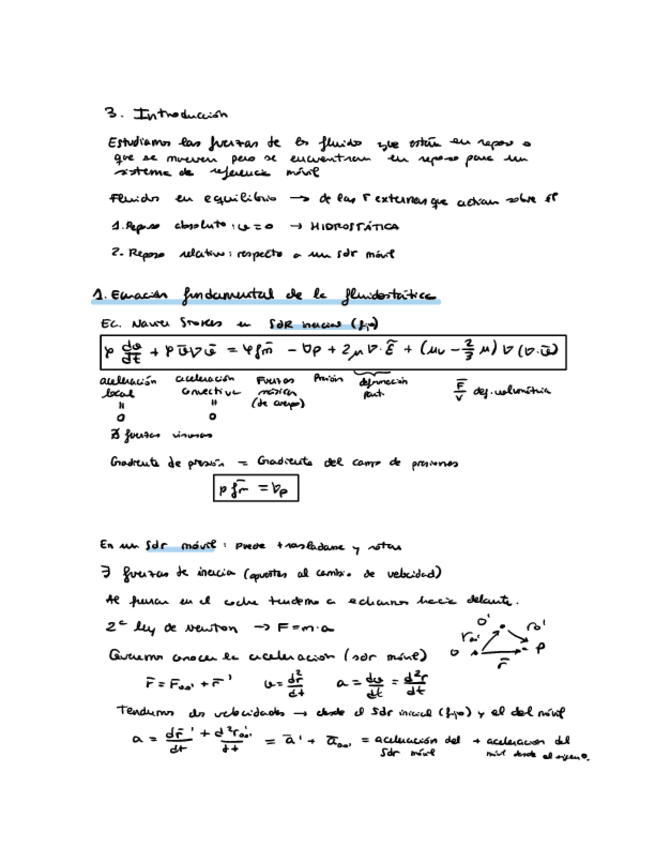 3. Introducción
Estudiamos las fuerzas de los fluido que están en reposo o
que se mueven pero se encuentran en reposo para un
sistema de referencia móvil
Fluidos en equilibrio → de las F externas que actúan sobre él
1. Reposo absoluto: v = 0 → HIDROSTÁTICA
2. Reposo relativo: respecto a un sdr móvil
1. Ecuación fundamental de la fluidostática
Ec. Navier Stokes en SdR inercial (fijo)
ρ dv/dt + ρ v̄∇v̄ = ρ f̄m − ∇p + 2μ∇·Ē + (μv − 2/3 μ) ∇(∇·v̄)
aceleración local = 0 aceleración convectiva = 0 Fuerzas másicas (de cuerpo) Presión deformación F̄/V def. volumétrica
∄ fuerzas viscosas
Gradiente de presión = Gradiente del campo de presiones
ρ f̄m = ∇p
En un Sdr móvil: puede trasladarse y rotar
∃ fuerzas de inercia (opuestas al cambio de velocidad)
Al frenar en el coche tendemos a echarnos hacia delante.
2ª ley de Newton → F = m·a
Queremos conocer la aceleración (sdr móvil)
o' r̄oo' r̄o' o r̄ p
r̄ = r̄oo' + r̄' v = dr̄/dt a = dv/dt = d²r/dt
Tendremos dos velocidades → desde el Sdr inercial (fijo) y el del móvil
a = dr̄'/dt + d²r̄oo'/dt = ā' + āoo' = aceleración del sdr móvil + aceleración del móvil desde el origen o.